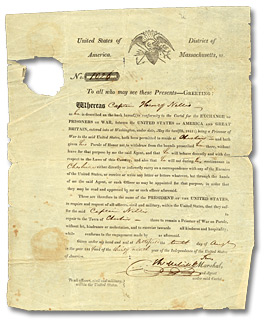 United States of America.
District of Massachusetts, ss.
No.
To all who may see these Presents—GREETING:
WHEREAS Captain Henry Nelles
as he is described on the back hereof, in conformity to the Cartel for the EXCHANGE of
PRISONERS of WAR, between the UNITED STATES of AMERICA, and GREAT
BRITAIN, entered into at Washington, under date, May the twelfth, 1813; being a Prisoner of War
to the said United States, hath been permitted to reside at Cheshire and hath given
his Parole of Honor not to withdraw from the bounds prescribed him there, without
leave for that purpose by me the said Agent; and that he will behave decently and with due
respect to the Laws of this Country, and also that he will during his
Cheshire either directly or indirectly carry on a correspondence with any of the Enemies
of the United States, or receive or write any letter or letters whatever, but through the hands
of me the said Agent, or such Officer as may be appointed for that purpose, in order that
they may be read and approved by me or such officer as aforesaid.
THESE are therefore in the name of the PRESIDENT of the UNITED STATES,
to require and request all officers, civil and military, within the United States, that they suffer
the said Captain Nelles
to repair to the Town of Cheshire there to remain a Prisoner of War on Parole,
without let, hindrance or molestation, and to exercise towards him kindness and hospitality,
while conforms to the engagement made by as aforesaid.
Given under my hand and at this tenth day of Augt
the year
of the Independence of the United States of America.
Marshal,
and Agent
under said Cartel,
To all officers, civil and military
within the United States.